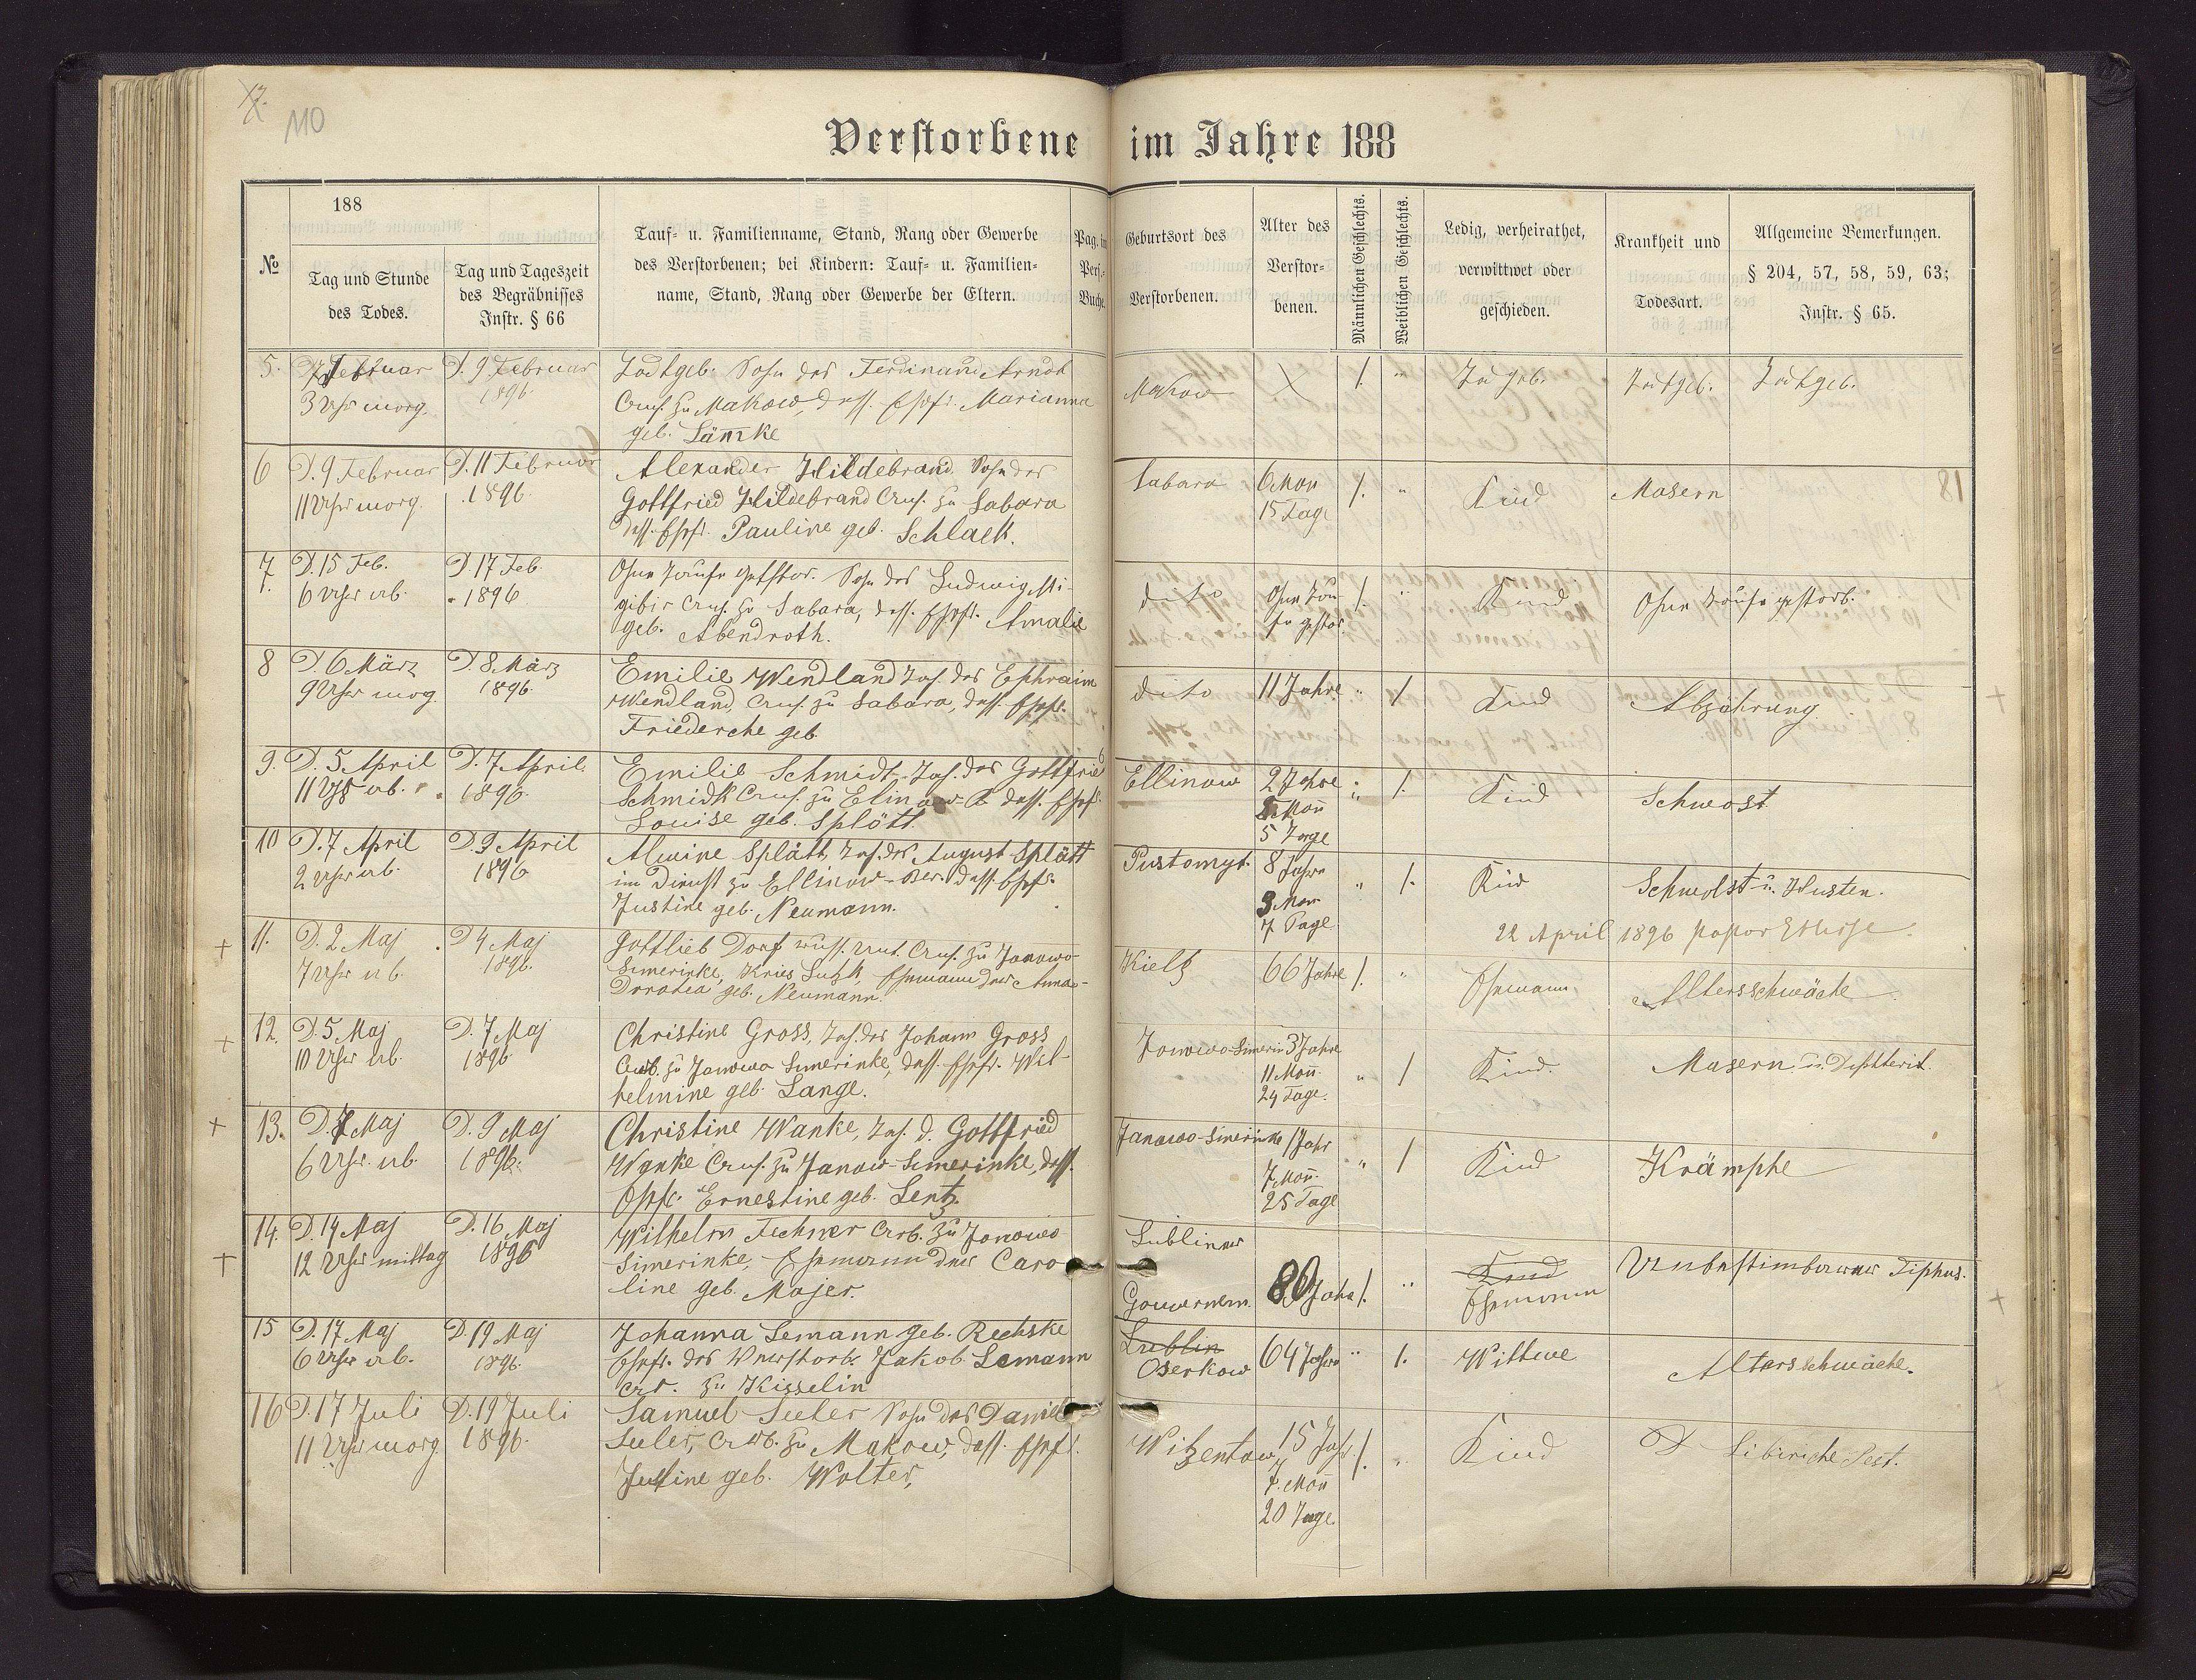 110
Verstorbene im Jahre 188
188
№
Tag und Stunde
des Todes.
Tag und Tageszeit
des Begräbnisses
Instr. § 66
Tauf- u. Familienname, Stand, Rang oder Gewerbe
des Verstorbenen; bei Kindern: Tauf- u. Familien-
name, Stand, Rang oder Gewerbe der Eltern.
Pag. im
Pers.-
Buche.
Geburtsort des
Verstorbenen.
Alter des
Verstor-
benen.
Männlichen Geschlechts.
Weiblichen Geschlechts.
Ledig, verheirathet,
verwittwet oder
geschieden.
Krankheit und
Todesart.
Allgemeine Bemerkungen.
§ 204, 57, 58, 59, 63;
Instr. § 65.
5.
7 Februar
3 Uhr morg.
D. 9 Februar
1896.
Todtgeb. Sohn des Ferdinand Arndt
zu Makow, dess. Ehefr. Marianna
geb. Lämke
Makow
X
1.
"
Todtgeb.
Todtgeb.
Todtgeb.
6
D. 9 Februar
11 Uhr morg.
D. 11 Februar
1896.
Alexander Hildebrand Sohn des
Gottfried Hildebrand zu Sabara
dess. Ehefr. Pauline geb. Schlack.
Sabara
6 Mon
15 Tage
1.
"
Kind
Masern
7.
D. 15 Feb.
6 Uhr ab.
D. 17 Feb.
1896
Ohne Taufe gestor. Sohn des Ludwig
zu Sabara, dess. Ehefr. Amalie
geb. Abendroth.
dito
Ohne Tau-
fe gestor.
1.
"
Kind
Ohne Taufe gestorb.
8
D. 6 März
9 Uhr morg.
D. 8 März
1896.
Emilie Wendland Toch. des Ephraim
Wendland, zu Sabara, dess. Ehefr.
Friederche geb.
dito
11 Jahre
"
1.
Kind
Abzährung.
9.
D. 5 April
11 Uhr ab.
D. 7 April
1896.
Emilie Schmidt Toch. des Gottfried
Schmidt zu Elinow dess. Ehefr.
Louise geb. Splött.
Ellinow
2 Jahre
Mon
5 Tage
"
1.
Kind
Schwost
10
D. 7 April
2 Uhr ab.
D. 9 April
1896
Alwine Splätt, Toch. des August Splätt
im Dienst zu Ellinow dess. Ehefr.
Justine geb. Neumann.
Pustomyt.
8 Jahre
3 Mon
7 Tage
"
1.
Kind
Schwolst u. Husten.
22 April 1896 Pastor
11.
D. 2 Maj
7 Uhr ab.
D 4 Maj
1896.
Gottlieb Dorf zu Janowo-
Simerinke, Kries Luzk, Ehemann der Anna-
Dorotea geb. Neumann.
Kieltz
66 Jahre
1.
"
Ehemann.
Altersschwäche
12.
D. 5 Maj
10 Uhr ab.
D. 7 Maj
1896
Christine Gross, Toch. des Johann Gross
zu Janowa Simerinke, dess. Ehefr. Wil-
helmine geb. Lange.
Janowo-Simerin
3 Jahre
11 Mon.
24 Tage.
"
1
Kind.
Masern u. Diphterit.
13.
D. 7 Maj
6 Uhr. ab.
D. 9 Maj
1896.
Christine Wanke, Toch. d. Gottfried
Wanke zu Janow-Simerinke, dess.
Ehefr. Ernestine geb. Lentz.
Janowo-Simerinke
1 Jahr
7 Mon.
25 Tage
"
1
Kind
Krämphe
14.
D. 14 Maj
12 Uhr mittag
D. 16 Maj
1896
Wilhelm Fechner zu Janowo
Simerinke, Ehemann der Caro
line geb. Majer.
Lubliner
Gouvernem.
80 Jahr
1.
"
Kind
Ehemann
Unbestimbarer Tiphus.
15
D. 17 Maj
6 Uhr ab.
D. 19 Maj
1896.
Johanna Lemann geb. Rechske
Ehefr. des Verstorb. Jakob Lemann
zu Kisselin
Lublin
Oserkow
64 Jahre
"
1.
Wittwe
Altersschwäche.
16
D. 17 Juli
11 Uhr morg.
D. 19 Juli
1896.
Samuel Seeler Sohn des Daniel
Seeler, zu Makow, dess. Ehefr.
Justine geb. Wolter,
Witzentow
15 Jahr
7. Mon
20 Tage
1.
"
Kind
D Sibirische Pest.